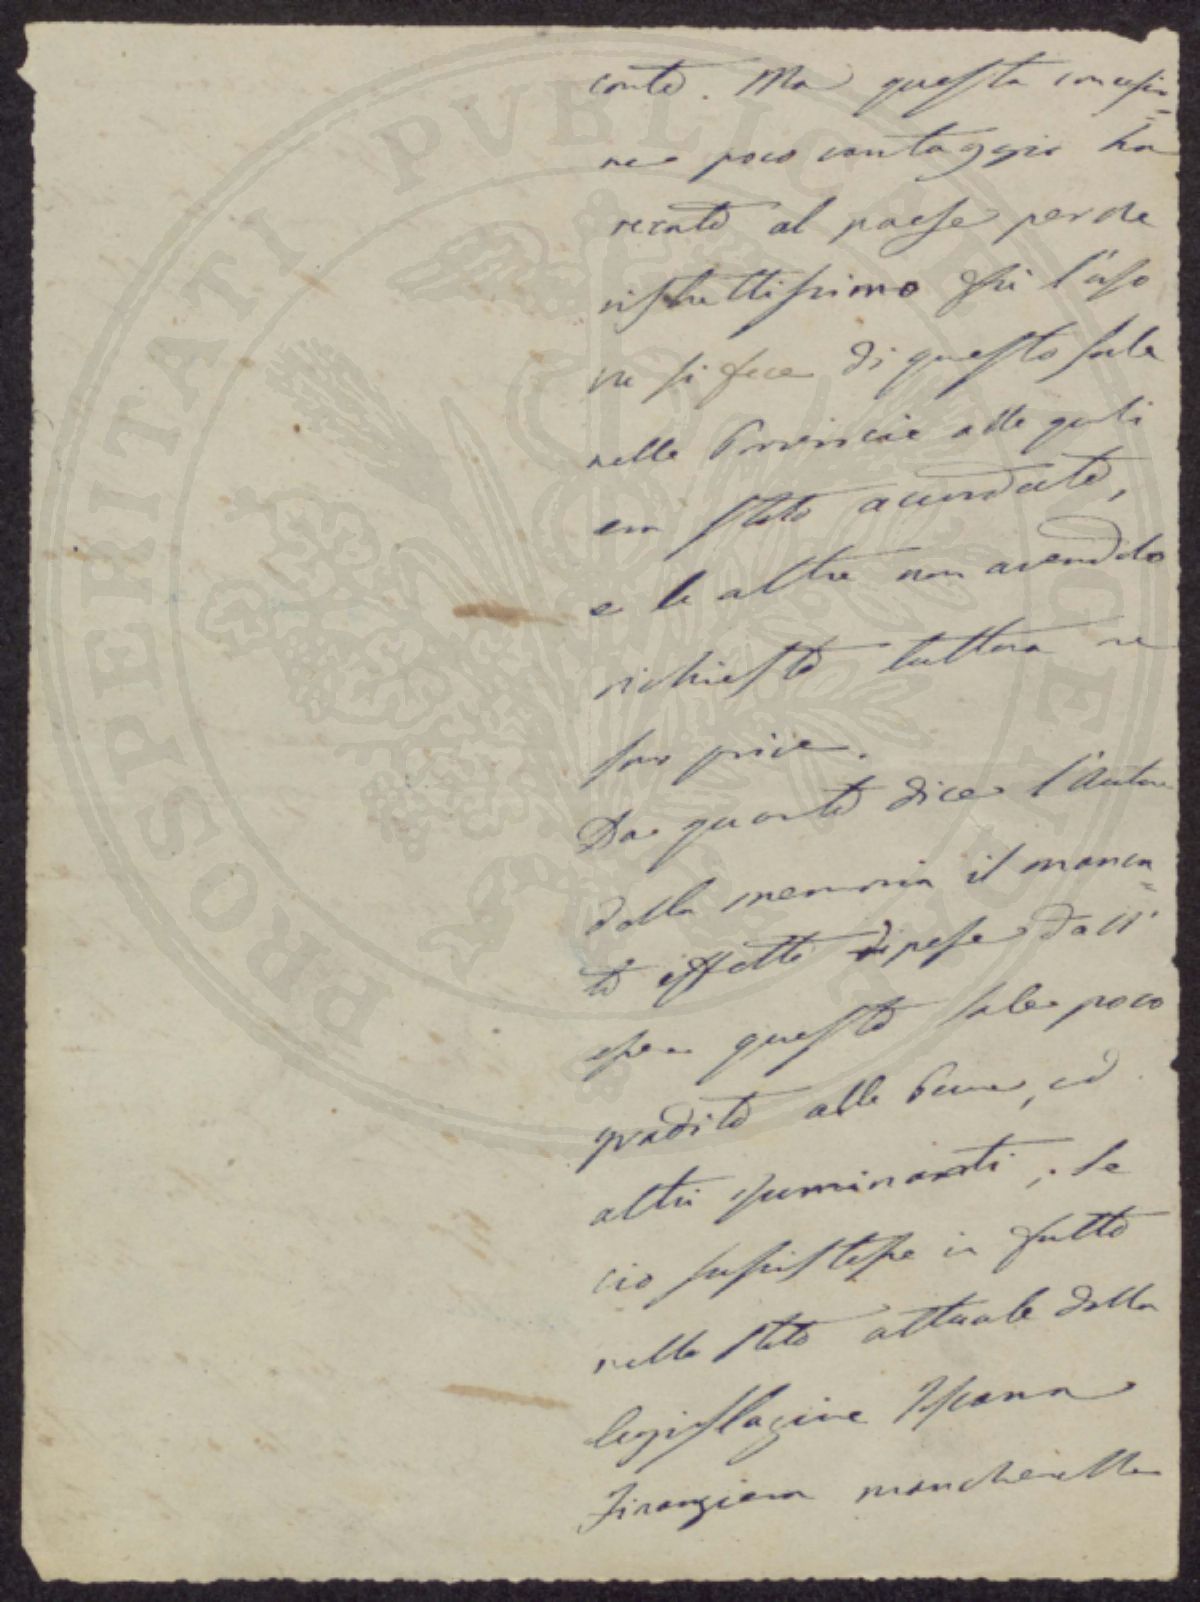 conto. Ma questa concessio=
ne poco vantaggio ha
recato al paese perche
ristrettissimo fù l'uso
che si fece di questo sale
nelle Provincie alle quali
era stato accordato,
e le altre non avendolo
richiesto tuttora ne
son prive.
Da quanto dice l'Autore
della memoria il manca=
to effetto dipese dall'
esser questo sale poco
gradito alle Pecore, ed
altri ruminanti; se
ciò sussistesse in fatto
nello stato attuale della
legislazione Toscana
Finanziera mancherebbe
PROSPERITATI PVBLICAE AVGENDAE